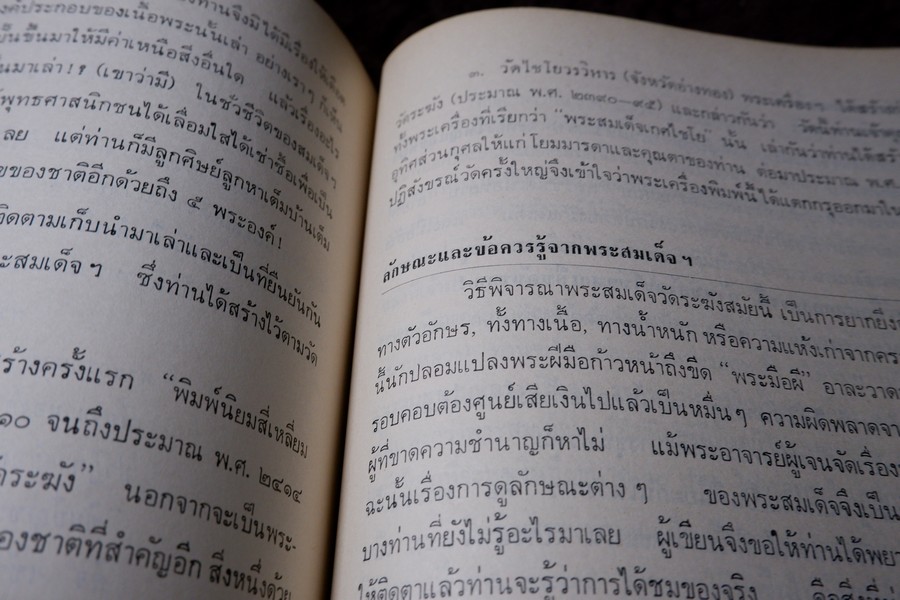 ท่านจึงมิได้มีเรื่องให้
องค์ประกอบของเนื้อพระนั้นเล่า อย่างเราๆ ก็เห็น
ขึ้นมาให้มีค่าเหนือสิ่งอื่นใด แล้วเรื่องอะไร
มาเล่า!? (เขาว่ามี) ในชั่วชีวิตของสมเด็จฯ
พุทธศาสนิกชนได้เลื่อมใสได้เช่าซื้อเพื่อเป็น
เลย แต่ท่านก็มีลูกศิษย์ลูกหาเต็มบ้านเต็ม
ของชาติอีกด้วยถึง ๕ พระองค์!
ติดตามเก็บนำมาเล่าและเป็นที่ยืนยันกัน
ะสมเด็จฯ ซึ่งท่านได้สร้างไว้ตามวัด
ร้างครั้งแรก “พิมพ์นิยมสี่เหลี่ยม
๑๐ จนถึงประมาณ พ.ศ. ๒๔๑๔
ระฆัง” นอกจากจะเป็นพระ-
องชาติที่สำคัญอีก สิ่งหนึ่งด้วย
๓. วัดไชโยวรวิหาร (จังหวัดอ่างทอง) พระเครื่องฯ ได้สร้าง
วัดระฆัง (ประมาณ พ.ศ. ๒๓๙๐–๙๕) และกล่าวกันว่า วัดนี้ท่านเจ้า
ทั้งพระเครื่องที่เรียกว่า “พระสมเด็จเกศไชโย” นั้น เล่ากันว่าท่านได้สร้
อุทิศส่วนกุศลให้แก่ โยมมารดาและคุณตาของท่าน ต่อมาประมาณ พ.ศ.
ปฏิสังขรณ์วัดครั้งใหญ่จึงเข้าใจว่าพระเครื่องพิมพ์นี้ได้แตกกรุออกมาใน
ลักษณะและข้อควรรู้จากพระสมเด็จฯ
วิธีพิจารณาพระสมเด็จวัดระฆังสมัยนี้ เป็นการยากยิ่ง
ทางตัวอักษร, ทั้งทางเนื้อ, ทางน้ำหนัก หรือความแห้งเก่าจากคร
นั้นักปลอมแปลงพระฝีมือก้าวหน้าถึงขีด “พระมือผี” อาละวาด
รอบคอบต้องศูนย์เสียเงินไปแล้วเป็นหมื่นๆ ความผิดพลาดจา
ผู้ที่ขาดความชำนาญก็หาไม่ แม้พระอาจารย์ผู้เจนจัดเรื่อง
ฉะนั้นเรื่องการดูลักษณะต่างๆ ของพระสมเด็จจึงเป็น
บางท่านที่ยังไม่รู้อะไรมาเลย ผู้เขียนจึงขอให้ท่านได้พยา
ให้ติดตาแล้วท่านจะรู้ว่าการได้ชมของจริง คือสิ่งที่